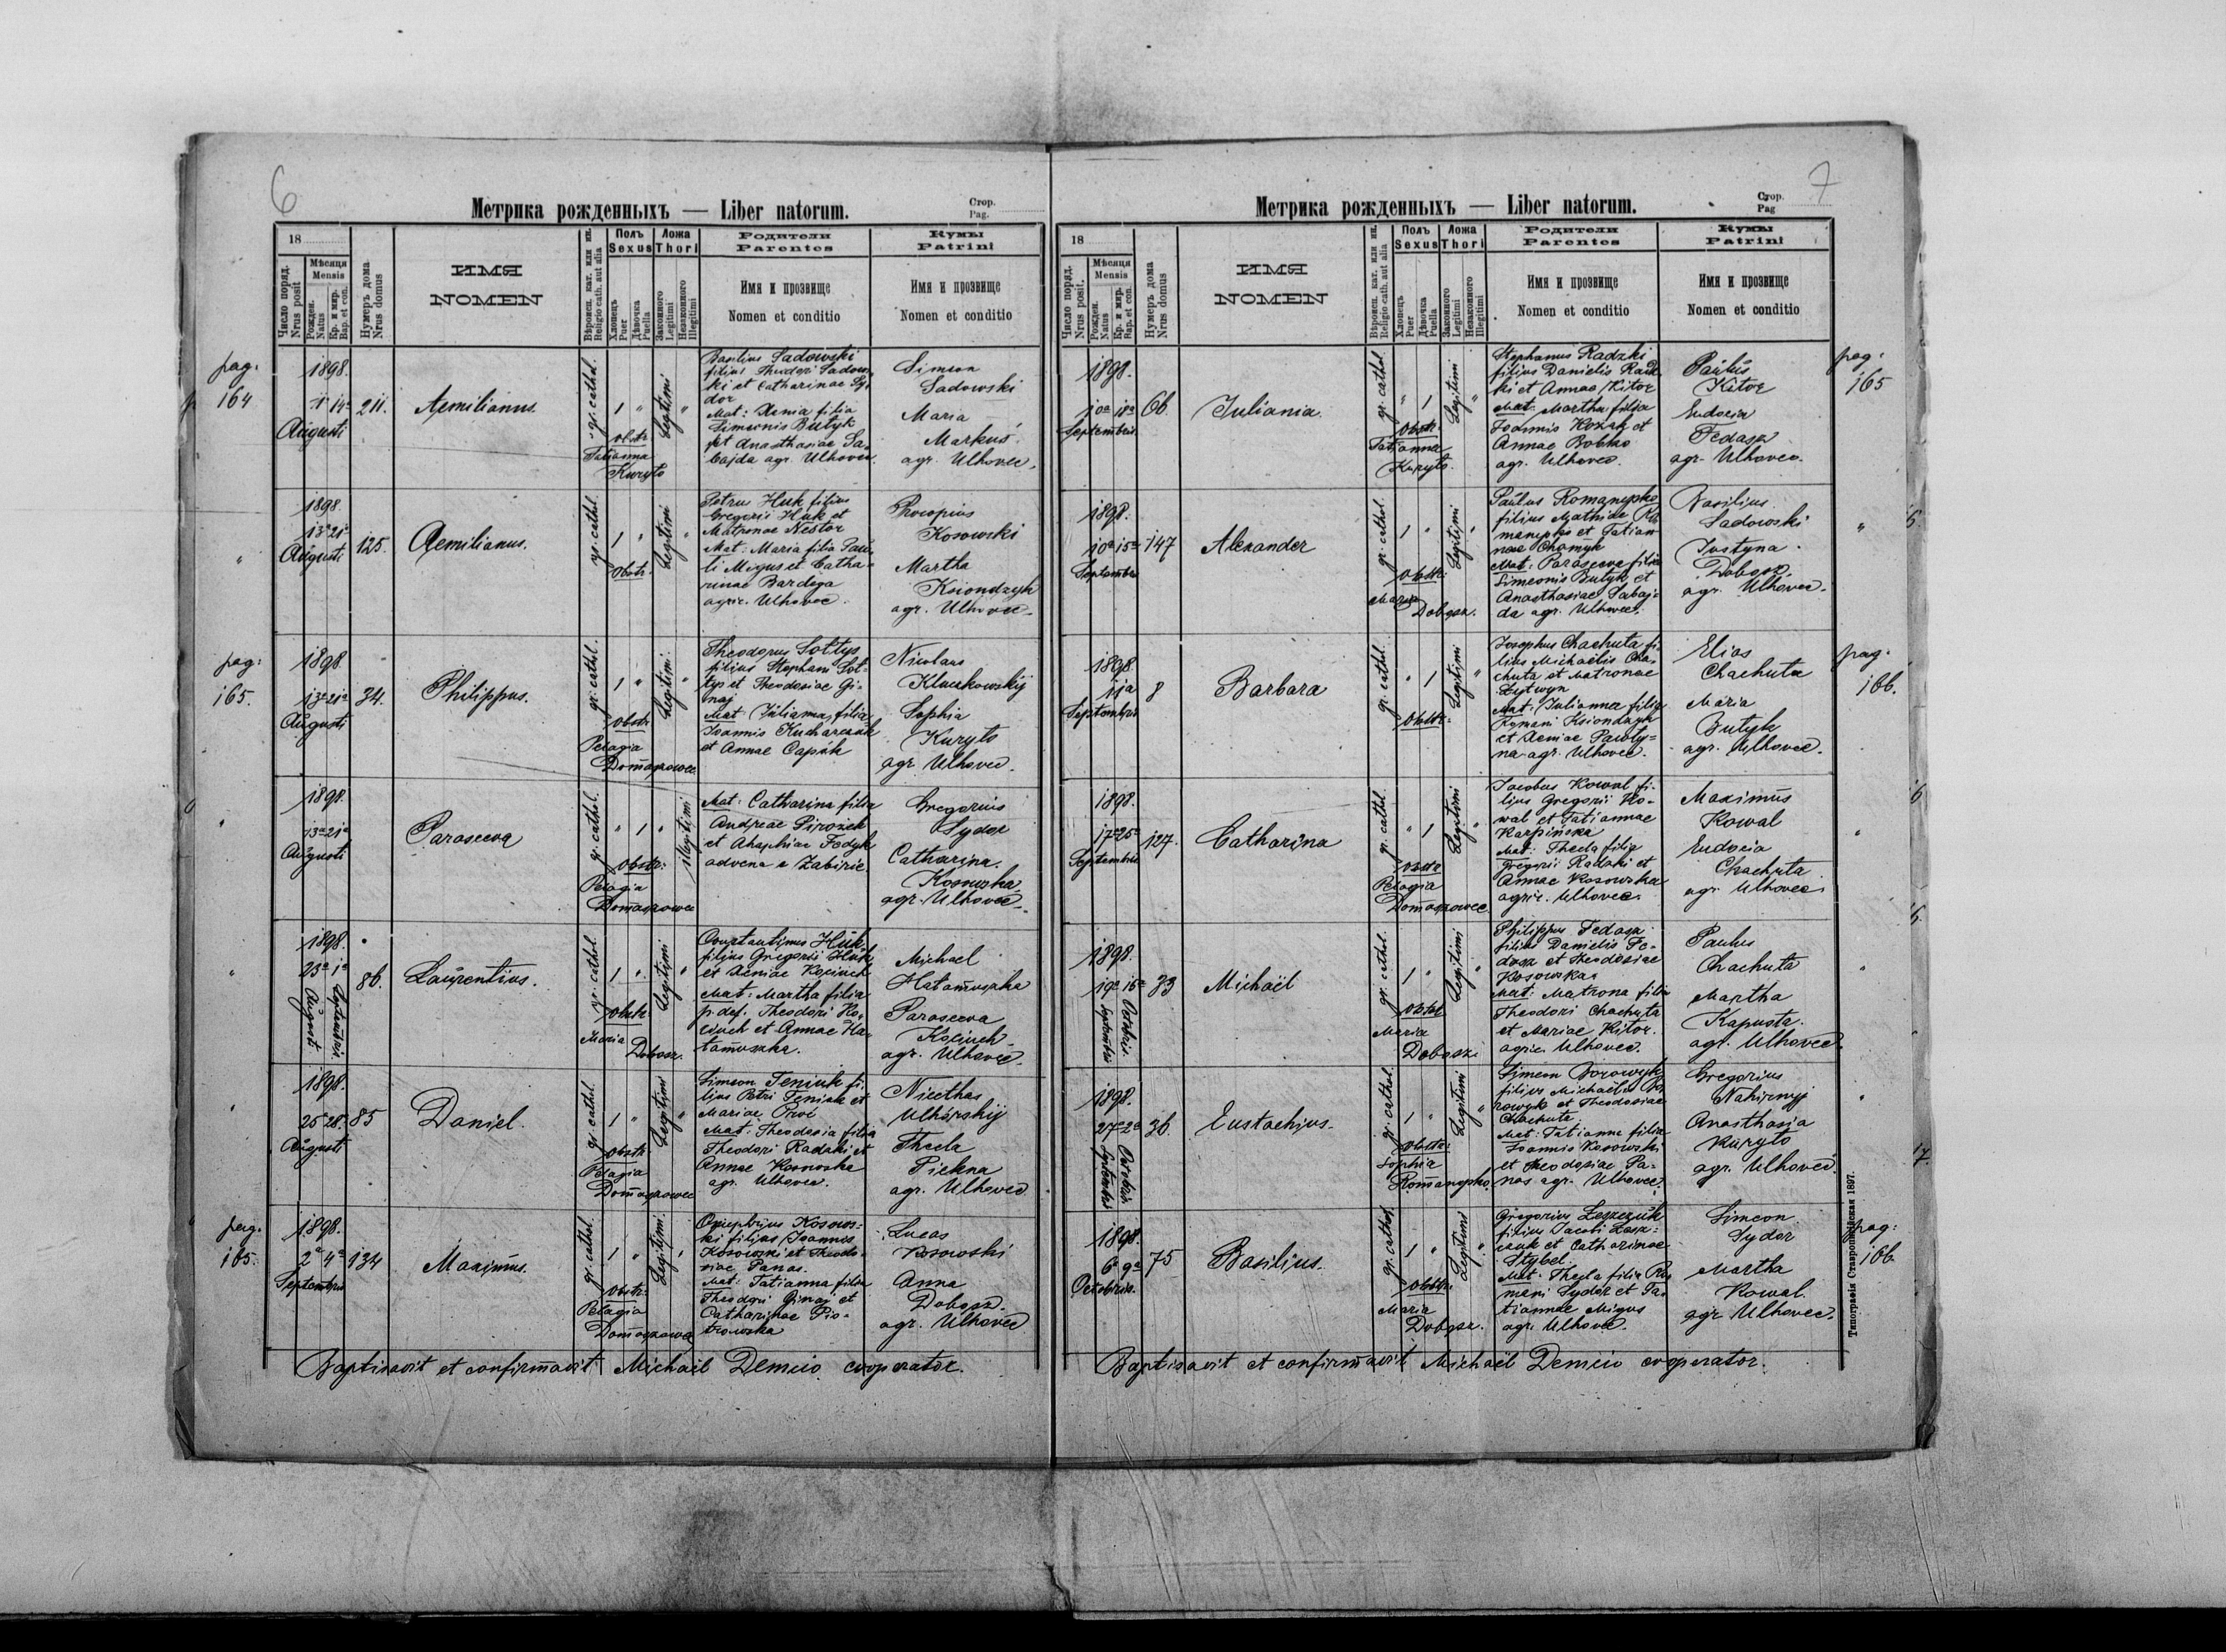 6
Метрика рожденныхъ — Liber natorum.
Стор.
Pag.
18
Число поряд.
Nrus posit
Мѣсяця
Mensis
Рожден.
Natus
Кр. и мир.
Bap. et con.
Нумеръ дома
Nrus domus
ИМЯ
NOMEN
Вѣроисп. кат. или ин.
Religio cath. aut alia
Полъ
Sexus
Хлопецъ
Puer
Дѣвочка
Puella
Ложа
Thori
Законного
Legitimi
Незаконного
Illegitimi
Родители
Parentes
Имя и прозвище
Nomen et conditio
Кумы
Patrini
Имя и прозвище
Nomen et conditio
pag.
164
1898.
14a
Augusti
211.
Aemilianus.
gr. cathol.
1 "
obstr.
Tatianna
Kuryło
Legitimi
"
Basilius Sadowski
filius Theodori Sadows
ki et Catharinae Sy
dor
Mat: Xenia filia
Simeonis Butyk
et Anasthasiae Sa
bajda agr. Ulhovec.
Simeon
Sadowski
Maria
Markus
agr. Ulhovec.
"
1898.
13a 21a
Augusti
125.
Aemilianus.
gr. cathol.
1 "
Obstr.
Legitimi
"
Petru Huk filius
Gregorii Huk et
Matronae Nestor
Mat: Maria filia Pau
li Migus et Catha
rinae Bardega
agric. Ulhovec.
Procopius
Kosowski
Martha
Ksiondzyk
agr. Ulhovec.
pag:
165.
1898.
13a 21a
Augusti
34.
Philippus.
gr. cathol.
1 "
Obstr.
Pelagia
Domaszowec
Legitimi
"
Theodorus Sołtys
filius Stephani Soł
tys et Theodosiae Gi
naj
Mat: Juliama, filia
Joannis Kucharczuk
et Annae Capak
Nicolaus
Kluczkowskij
Sophia
Kuryło
agr. Ulhovec.
"
1898.
13a 21a
Augusti
Parasceva
gr. cathol.
" 1 "
Obstr:
Pelagia
Domaszowec
illegitimi
Mat: Catharina filia
Andreae Pirożek
et Ahaphiae Fedyk
advena e Zabirie.
Gregorius
Sydor
Catharina.
Kosowska
agr. Ulhovec.
"
1898.
23a 1a
August
Septembris
86.
Laurentius.
gr. cathol.
1 "
Obstr.
Maria
Dobosz.
Legitimi
"
Constantinus Huk
filius Gregorii Huk
et Xeniae Kociuch
Mat: Martha filia
p. def. Theodori Ko
ciuch et Annae Ha
tamuszka.
Michael
Hatamuszka
Parasceva
Kociuch
agr. Ulhovec.
"
1898.
25 28.
Augusti
85
Daniel.
gr. cathol.
1 "
Obstr.
Pelagia
Domaszowec
Legitimi
"
Simeon Teniuk fi
lius Petri Teniuk et
Mariae Proć
Mat: Theodosia filia
Theodori Radzki et
Annae Kosowska
agr. Ulhovec.
Nicethas
Uhorskij
Thecla
Piekna
agr. Ulhovec
pag.
165.
1898.
2a 4a
Septembris
134
Maximus.
gr. cathol.
1 "
Obstr:
Pelagia
Domaszowec
Legitimi.
Onuphrius Kosows
ki filius Joannis
Kosowski et Theodo
siae Panas.
Mat: Tatianna filia
Theodori Ginaj et
Catharinae Pio
trowska
Lucas
Kosowski
Anna
Dobosz.
agr. Ulhovec
Baptisavit et confirmavit Michaël Demcio cooperator.
7
Метрика рожденныхъ — Liber natorum.
Стор.
Pag
18
Число поряд.
Nrus posit.
Мѣсяця
Mensis
Рожден.
Natus
Кр. и мир.
Bap. et con.
Нумеръ дома
Nrus domus
ИМЯ
NOMEN
Вѣроисп. кат. или ин.
Religio cath. aut alia
Полъ
Sexus
Хлопецъ
Puer
Дѣвочка
Puella
Ложа
Thori
Законного
Legitimi
Незаконного
Illegitimi
Родители
Parentes
Имя и прозвище
Nomen et conditio
Кумы
Patrini
Имя и прозвище
Nomen et conditio
1898.
10a 18a
Septembris
66.
Juliania.
gr. cathol.
" 1
Obstr.
Tatianna
Kuryło.
Legitimi
"
Stephanus Radzki
filius Danielis Radz
ki et Annae Kitor
Mat: Martha filia
Joannis Kozak et
Annae Bobko
agr. Ulhovec.
Paulus
Kitor
Eudocia
Fedasz
agr. Ulhovec.
pag:
165
1898.
10a 15a
Septembris
147
Alexander
gr. cathol.
1 "
Obstr.
Maria
Dobosz.
Legitimi
Paulus Romanyszko
filius Mathiae Ro
manyszko et Tatian
nae Chomyk
Mat: Parasceva filia
Simeonis Butyk et
Anasthasiae Sabaj
da agr. Ulhovec.
Vasilius
Sadowski
Justyna
Dobosz.
agr. Ulhovec.
"
1898.
11a
Septembris
8
Barbara
gr. cathol.
" 1
Obstr.
Legitimi
"
Josephus Chachuta fi
lius Michaëlis Cha
chuta et Matronae
Łytwyn
Mat: Julianna filia
Romani Ksiondzyk
et Xeniae Pawły=
na agr. Ulhovec.
Elias
Chachuta
Maria
Butyk
agr. Ulhovec.
pag.
166.
1898.
17a 25a
Septembris
127.
Catharina
gr. cathol.
" 1
Obstr
Pelagia
Domaszowec.
Legitimi
"
Jacobus Kowal fi
lius Gregorii Ko-
wal et Tatiannae
Karpińska
Mat: Thecla filia
Gregorii Radzki et
Annae Kosowska
agric. Ulhovec.
Maximus
Kowal
Eudocia
Chachuta
agr. Ulhovec.
"
1898.
19a 16a
Septembris
Octobris.
83
Michaël
gr. cathol.
1 "
Obstr
Maria
Dobosz.
Legitimi
"
Philippus Fedasz
filius Danielis Fe-
dasz et Theodosiae
Kosowska
Mat: Matrona filia
Theodori Chachuta
et Mariae Kitor.
agric. Ulhovec.
Paulus
Chachuta
Martha
Kapusta.
agr. Ulhovec.
"
1898.
27a 2a
Septembris
Octobris.
36.
Eustachius.
gr. cathol.
1 "
Obstr:
Sophia
Romanyszko.
Legitimi
"
Simeon Borowyk
filius Michaëlis Bo
rowyk et Theodosiae
Chachuta
Mat: Tatianna filia
Joannis Kosowski
et Theodosiae Pa-
nas agr. Ulhovec.
Gregorius
Nahirnyj
Anasthasia
Kuryło
agr. Ulhovec.
"
1898.
6a 9a
Octobris.
75
Basilius.
gr. cathol.
1 "
Obstr.
Maria
Dobosz.
Legitimi
"
Gregorius Leszczuk
filius Jacobi Leszc
zuk et Catharinae
Stybel.
Mat: Thecla filia Ro
mani Sydor et Ta
tiannae Migus
agr. Ulhovec.
Simeon
Sydor
Martha
Kowal.
agr. Ulhovec.
pag:
166
Baptisavit et confirmavit Michaël Demcio cooperator.
Типографія Ставропигійская 1897.